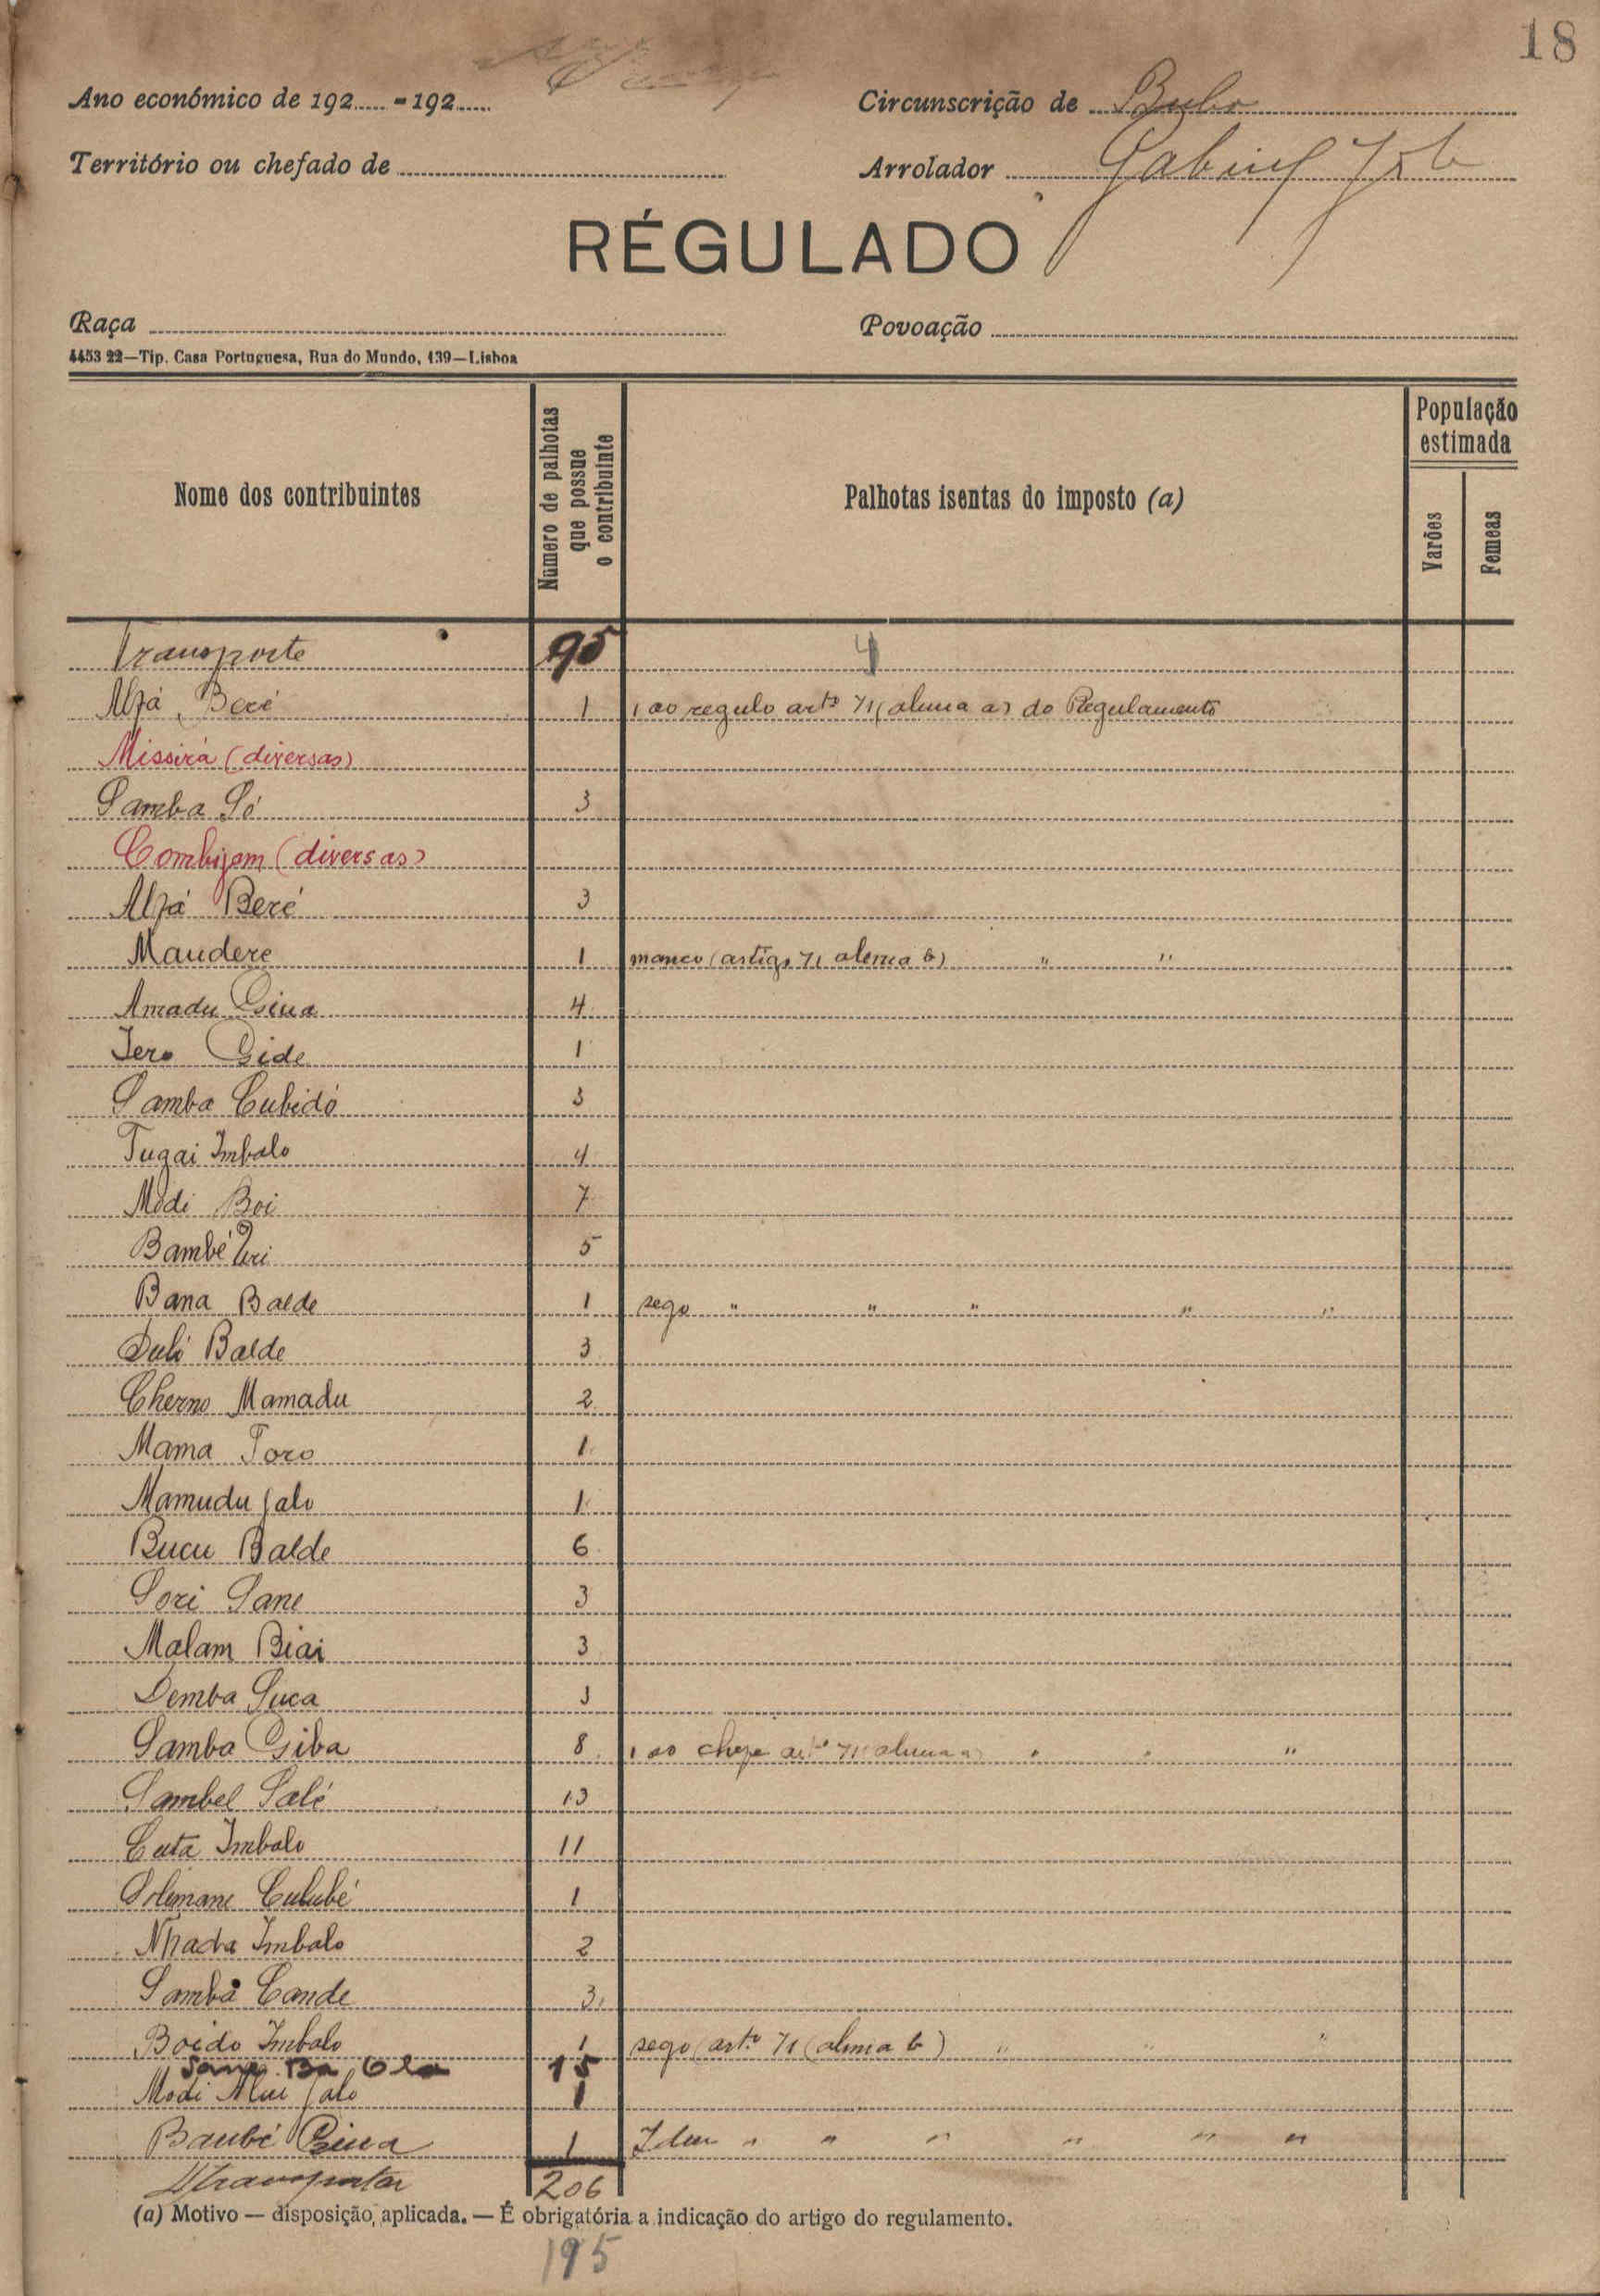 18
Ano económico de 192..... - 192.....
Circunscrição de Buba
Território ou chefado de
Arrolador Gabriel
RÉGULADO
Raça
Povoação
4453 22—Tip. Casa Portuguesa, Rua do Mundo, 139—Lisboa
Nome dos contribuintes
Número de palhotas que possue o contribuinte
Palhotas isentas do imposto (a)
População estimada
Varões
Femeas
Transporte 95 4
Alfá Beré 1 1 ao regulo artº 71 (alinea a) do Regulamento
Missirá (diversas)
Samba Só 3
Combijam (diversas)
Alfá Beré 3
Maudere 1 manco (artigo 71 alinea b) " "
Amadu 4
Iero Gide 1
Samba Cubidó 3
Tugai Imbalo 4
Modi Boi 7
Bambé 5
Bana Balde 1 sego " " " " "
Duli Balde 3
Cherno Mamadu 2
Mama Toro 1
Mamudu Jalo 1
Bucu Balde 6
Sori Sane 3
Malam Biai 3
Demba Suca 3
Samba Giba 8 1 ao chefe artº 71 alinea a) " " "
Sambel Salé 13
Cuta Imbalo 11
Solimane Culubé 1
Nhada Imbalo 2
Samba Cande 3
Boido Imbalo 1 sego (artº 71 (alinea b) " " "
Sane Ba 15
Modi Jalo 1
Baubé 1 Idem " " " " " "
A transportar 206
(a) Motivo — disposição aplicada. — É obrigatória a indicação do artigo do regulamento.
195